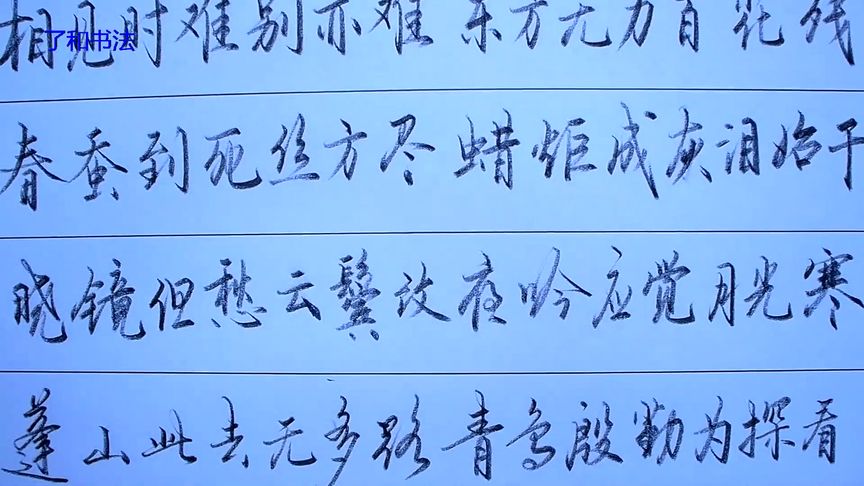 了和书法
相见时难别亦难 东方无力百花残
春蚕到死丝方尽 蜡炬成灰泪始干
晓镜但愁云鬓改 夜吟应觉月光寒
蓬山此去无多路 青鸟殷勤为探看